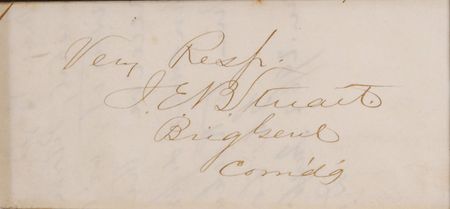 Very Resp.
J. E. B Stuart.
Brig Genl
Comdg